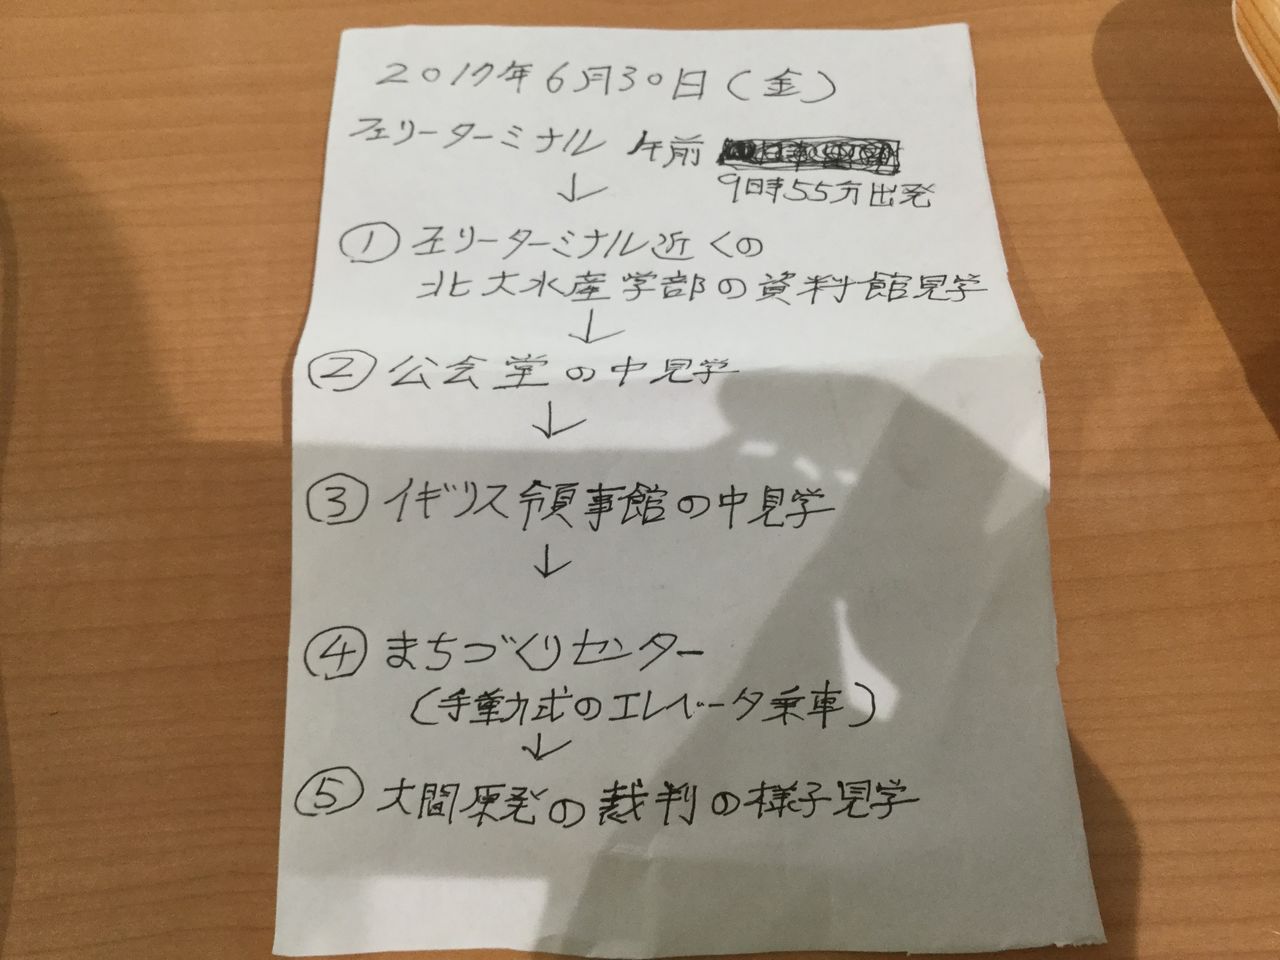 2017年6月30日(金)
フェリーターミナル 午前
9時55分出発
↓
① フェリーターミナル近くの
北大水産学部の資料館見学
↓
② 公会堂の中見学
↓
③ イギリス領事館の中見学
↓
④ まちづくりセンター
(手動式のエレベータ乗車)
↓
⑤ 大間原発の裁判の様子見学